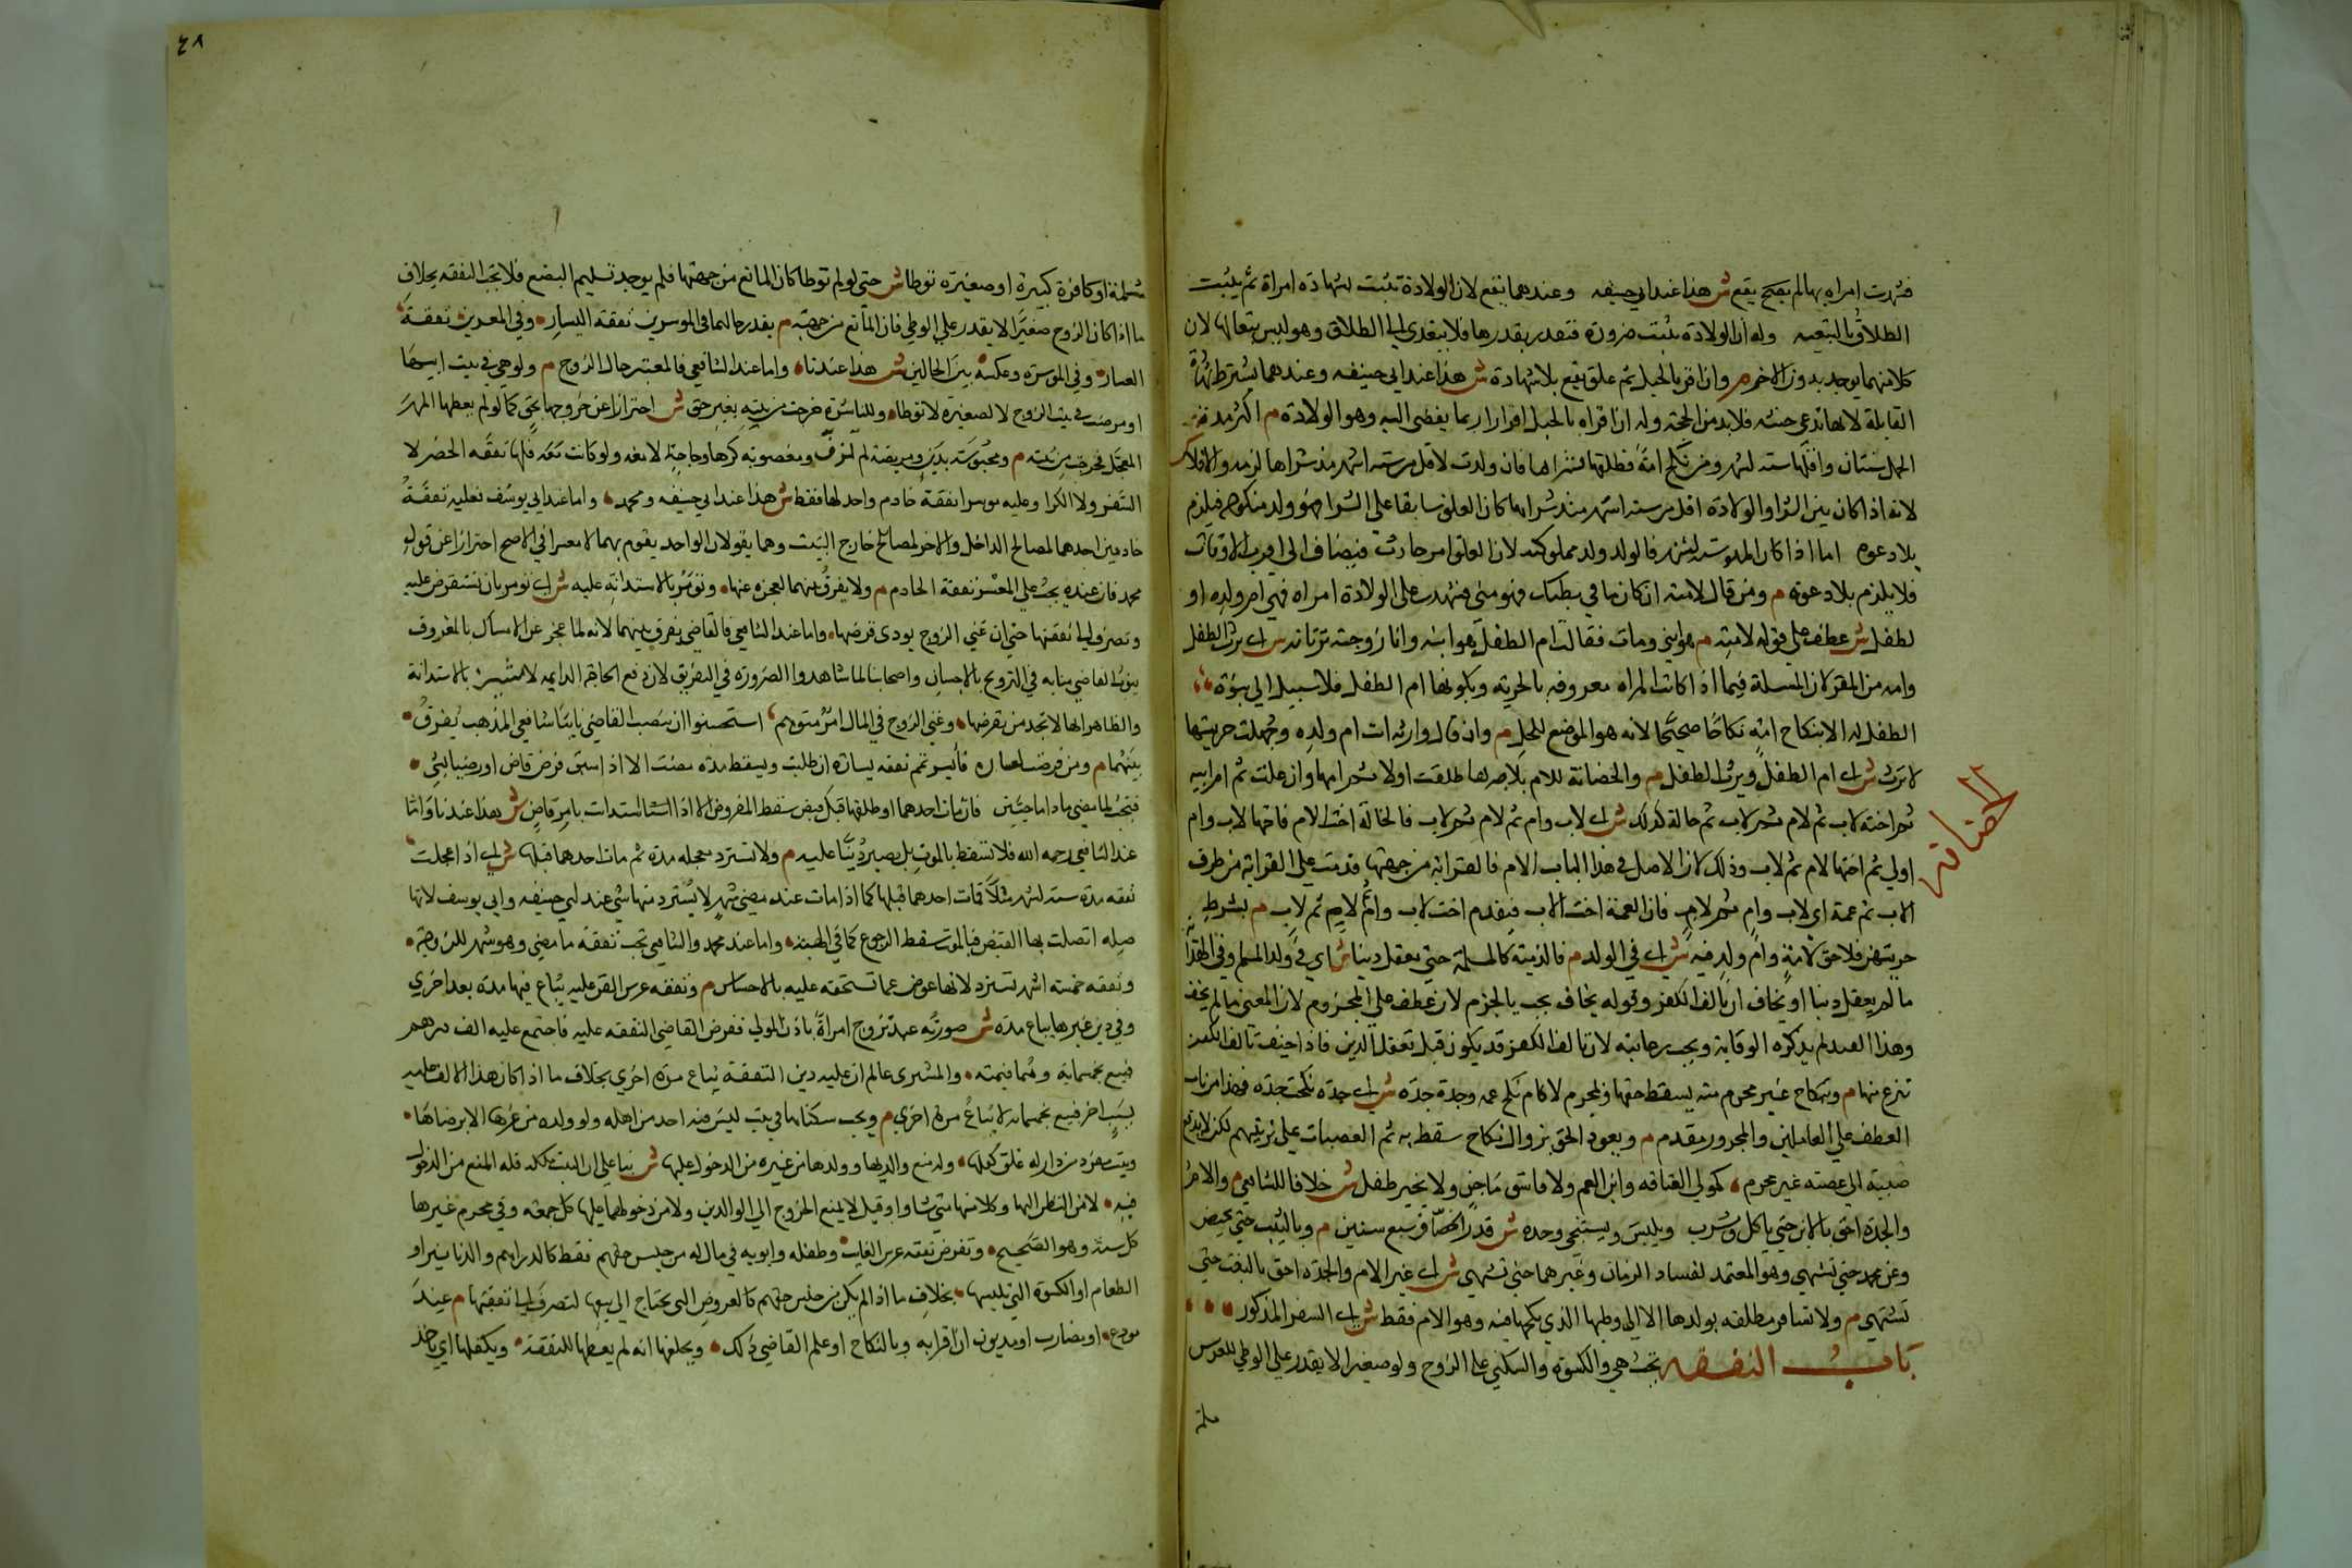 فشهدت امراة بها لم يصح يقع ش هذا عند ابي حنيفه وعندهما يقع لان الولادة تثبت بشهادة امراة ثم يثبت
الطلاق بالتبعيه وله ان الولادة تثبت ضرورة فتقدر بقدرها فلا يتعدي الي الطلاق وهو ليس بتعا لها لان
كلا منهما يوجد بدون الاخر م وان اقر بالحبل ثم علق يقع بلا شهادة ش هذا عند ابي حنيفه وعندهما يشترط شهادة
القابلة لانها تدعي حنثه فلا بد من الحجة وله ان اقراره بالحبل اقرار بما يفضي اليه وهو الولادة م اكثر مدة
الحمل سنتان واقلها سته اشهر ومن نكح امة فطلقها فشراها فان ولدت لاقل من سته اشهر منذ شراها لزمه والا فلا
لانه اذا كان بين الشرا والولادة اقل من سته اشهر منذ شراها كان العلوق سابقا علي الشرا فهو ولد منكوحه فيلزم
بلا دعوه اما اذا كان المدة سته اشهر فالولد ولد مملوكته لان العلوق امر حادث فيضاف الي اقرب الاوقات
فلا يلزم بلا دعوة م ومن قال لامته ان كان ما في بطنك فهو مني فشهدت علي الولادة امراه فهي ام ولده او
لطفل ش عطف علي قوله لامته م هو ابني ومات فقالت ام الطفل هو ابنه وانا زوجته ترثانه ش اي يرث الطفل
وامه من المقر لان المسلة فيما اذا كانت المراه معروفه بالحرية وبكونها ام الطفل فلا سبيل الي بنوة
الطفل له الا بنكاح امه نكاحا صحيحا لانه هو الموضع للحل م وان قال وارثه انت ام ولده وجهلت حريتها
لا ترث ش اي ام الطفل ويرث الطفل م والحضانة للام بلا جبرها طلقت اولا ثم امها وان علت ثم ام ابيه
ثم اخته لاب ثم لام ثم لاب ثم خالة كذلك ش اي لاب وام ثم لام ثم لاب فالخالة اخت الام فاختها لاب وام
اولي ثم اختها لام ثم لاب وذلك لان الاصل في هذا الباب الام فالقرابه من جهتها قدمت علي القرابة من طرف
الاب ثم عمة اي لاب وام ثم لام فان العمة اخت الاب فيقدم اخت لاب وام ثم لام ثم لاب م بشرط
حريتهن فلا حق لامة وام ولد فيه ش اي في الولد م فالذمية كالمسلمة حتي يعقل دينا ش اي في ولد المسلم
ما لم يعقل دينا او يخاف ان يالف الكفر وقوله يخاف يجب بالجزم لانه عطف علي المجزوم لان المعني ما لم يخف
وهذا القيد لم يذكره الوقاية ويجب رعايته لان تالف الكفر قد يكون قبل تعقل الدين فاذا خيف تالف الكفر
تنزع منها م وبنكاح غير محرم منه يسقط حقها وبمحرم لا كام نكح عمه وجدة جدة ش اي جدة نكحت جده فهذا من باب
العطف علي العاملين والمجرور مقدم م ويعود الحق بزوال نكاح سقط به ثم العصبات علي ترتيبهم لكن لا تدفع
صبية الي عصبة غير محرم كمولي العتاقه وابن العم ولا فاسق ماجن ولا يخير طفل ش خلافا للشافعي م والام
والجدة احق بالابن حتي ياكل ويشرب ويلبس ويستنجي وحده ش قدر الخصاف سبع سنين م وبالبنت حتي تحيض
وعن محمد حتي تشتهي وهو المعتمد لفساد الزمان وغيرهما حتي تشتهي ش اي غير الام والجدة احق بالبنت حتي
تشتهي م ولا تسافر مطلقه بولدها الا الي وطنها الذي نكحها فيه وهو الام فقط ش اي السفر المذكور
باب النفقه تجب هي والكسوة والسكني علي الزوج ولو صغيرا لا يقدر علي الوطي للعرس
الحضانة
٤٨
مسلمة او كافرة كبيرة او صغيرة توطا ش حتي لو لم توطا كان المانع من جهتها فلم يوجد تسليم البضع فلا تجب النفقه بخلاف
ما اذا كان الزوج صغيرا لا يقدر علي الوطي فان المانع من جهته م بقدر حالهما في الموسرين نفقة اليسار وفي المعسرين نفقة
العسار وفي الموسرة وعكسه بين الحالين ش هذا عندنا واما عند الشافعي فالمعتبر حال الزوج م ولو هي في بيت ابيها
او مرضت في بيت الزوج لا لصغيرة لا توطا وللناشزة خرجت من بيته بغير حق ش احترازا عن خروجها بحق كما لو لم يعطها المهر
المعجل فخرجت من بيته م ومحبوسة بدين ومريضة لم تزف ومغصوبة كرها وحاجة لا معه ولو كانت معه فلها نفقة الحضر لا
السفر ولا الكرا وعليه موسرا نفقة خادم واحد لها فقط ش هذا عند ابي حنيفه ومحمد واما عند ابي يوسف فعليه نفقة
خادمين احدهما لمصالح الداخل والاخر لمصالح خارج البيت وهما يقولان الواحد يقوم بهما لا معسرا في الاصح احترازا عن قول
محمد فان عنده يجب علي المعسر نفقة الخادم م ولا يفرق بينهما لعجزه عنها وتومر بالاستدانة عليه ش اي تومر بان تستقرض عليه
وتصرف الي نفقتها حتي ان غني الزوج يودي قرضها واما عند الشافعي فالقاضي يفرق بينهما لانه لما عجز عن الامساك بالمعروف
ينوب القاضي منابه في التسريح بالاحسان واصحابنا لما شاهدوا الضرورة في التفريق لان دفع الحاجة الدايمه لا يتيسر بالاستدانة
والظاهر انها لا تجد من يقرضها وغني الزوج في المال امر متوهم استحسنوا ان ينصب القاضي نايبا شافعي المذهب يفرق
بينهما م ومن فرضت لعساره فايسر تمم نفقه يساره ان طلبت ويسقط مدة مضت الا اذا سبق فرض قاض او رضيا بشي
فتجب لما مضي ما داما حيين فان مات احدهما او طلقها قبل قبض سقط المفروض الا اذا استدانت بامر قاض ش هذا عندنا واما
عند الشافعي رحمه الله فلا تسقط بالموت بل يصير دينا عليه م ولا تسترد معجله مدة ثم مات احدهما قبلها ش اي اذا عجلت
نفقه مدة سته اشهر مثلا فمات احدهما قبلها كما اذا مات عند مضي شهر لا يسترد منها شي عند ابي حنيفه وابي يوسف لانها
صله اتصلت بها القبض فبالموت سقط الرجوع كما في الهبة واما عند محمد والشافعي تجب نفقة ما مضي وهو شهر للزوجة
ونفقه خمسة اشهر تسترد لانها عوض عما تستحقه عليه بالاحتباس م ونفقه عرس القن عليه يباع فيها مدة بعد اخري
وفي دين غيرها يباع مدة ش صورته عبد تزوج امراة باذن المولي ففرض القاضي النفقه عليه فاجتمع عليه الف درهم
فبيع بخمسماية وهي قيمته والمشتري عالم ان عليه دين النفقة يباع مرة اخري بخلاف ما اذا كان هذا الالف عليه
بسبب اخر فبيع بخمسمايه لا يباع مرة اخري م ويجب سكناها في بيت ليس فيه احد من اهله ولو ولده من غيرها الا برضاها
وبيت مفرد من دار له غلق كفاها وله منع والديها وولدها من غيره من الدخول عليها ش بنا علي ان البيت ملكه فله المنع من الدخول
فيه لا من النظر اليها وكلامها متي شاوا وقيل لا يمنع الخروج الي الوالدين ولا من دخولهما عليها كل جمعه وفي محرم غيرها
كل سنة وهو الصحيح وتفرض نفقه عرس الغايب وطفله وابويه في مال له من جنس حقهم فقط كالدراهم والدنانير او
الطعام او الكسوة التي تلبسها بخلاف ما اذا لم يكن من جنس حقهم كالعروض التي يحتاج الي بيعها لتصرف الي نفقتها م عند
مودع او مضارب او مديون ان اقر به وبالنكاح او علم القاضي ذلك ويحلفها انه لم يعطها للنفقة ويكفلها اي ياخذ